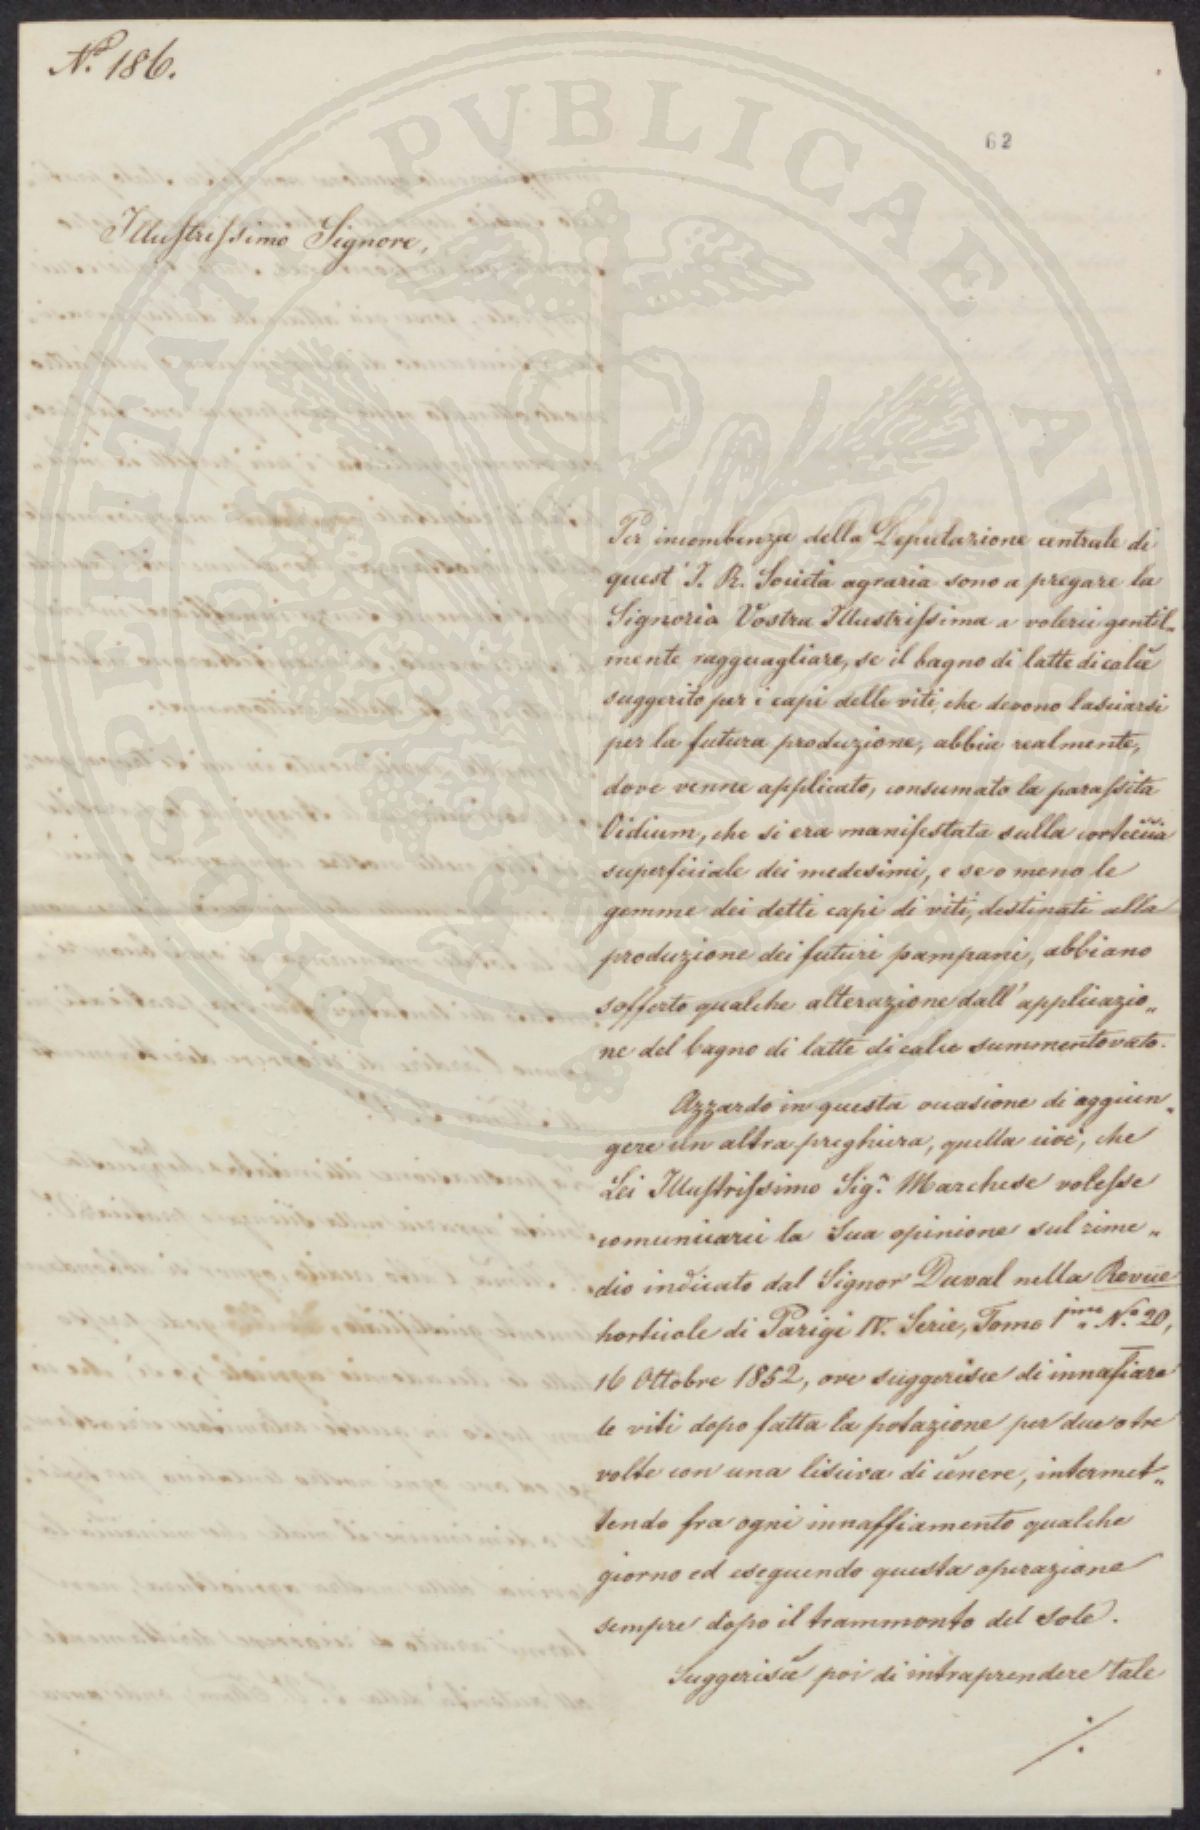 N.o 186.
62
Illustrissimo Signore,
Per incombenza della Deputazione centrale di
quest' I. R. Società agraria sono a pregare la
Signoria Vostra Illustrissima a volerci gentil„
mente ragguagliare, se il bagno di latte di calce
suggerito per i capi delle viti, che devono lasciarsi
per la futura produzione, abbia realmente,
dove venne applicato, consumato la parassita
Oidium, che si era manifestata sulla corteccia
superficiale dei medesimi, e se o meno le
gemme dei detti capi di viti, destinati alla
produzione dei futuri pampani, abbiano
sofferto qualche alterazione dall' applicazio„
ne del bagno di latte di calce summentovato.
Azzardo in questa occasione di aggiun„
gere un altra preghiera, quella cioè, che
Lei Illustrissimo Sig.r Marchese volesse
comunicarci la Sua opinione sul rime„
dio indicato dal Signor Duval nella Revue
horticole di Parigi IV. Serie, Tomo I N.o 20,
16 Ottobre 1852, ove suggerisce di innafiare
le viti dopo fatta la potazione per due o tre
volte con una lisciva di cenere, intermet„
tendo fra ogni innaffiamento qualche
giorno ed eseguendo questa operazione
sempre dopo il trammonto del sole.
Suggerisce poi di intraprendere tale
PROSPERITATI PUBLICAE AUGENDAE